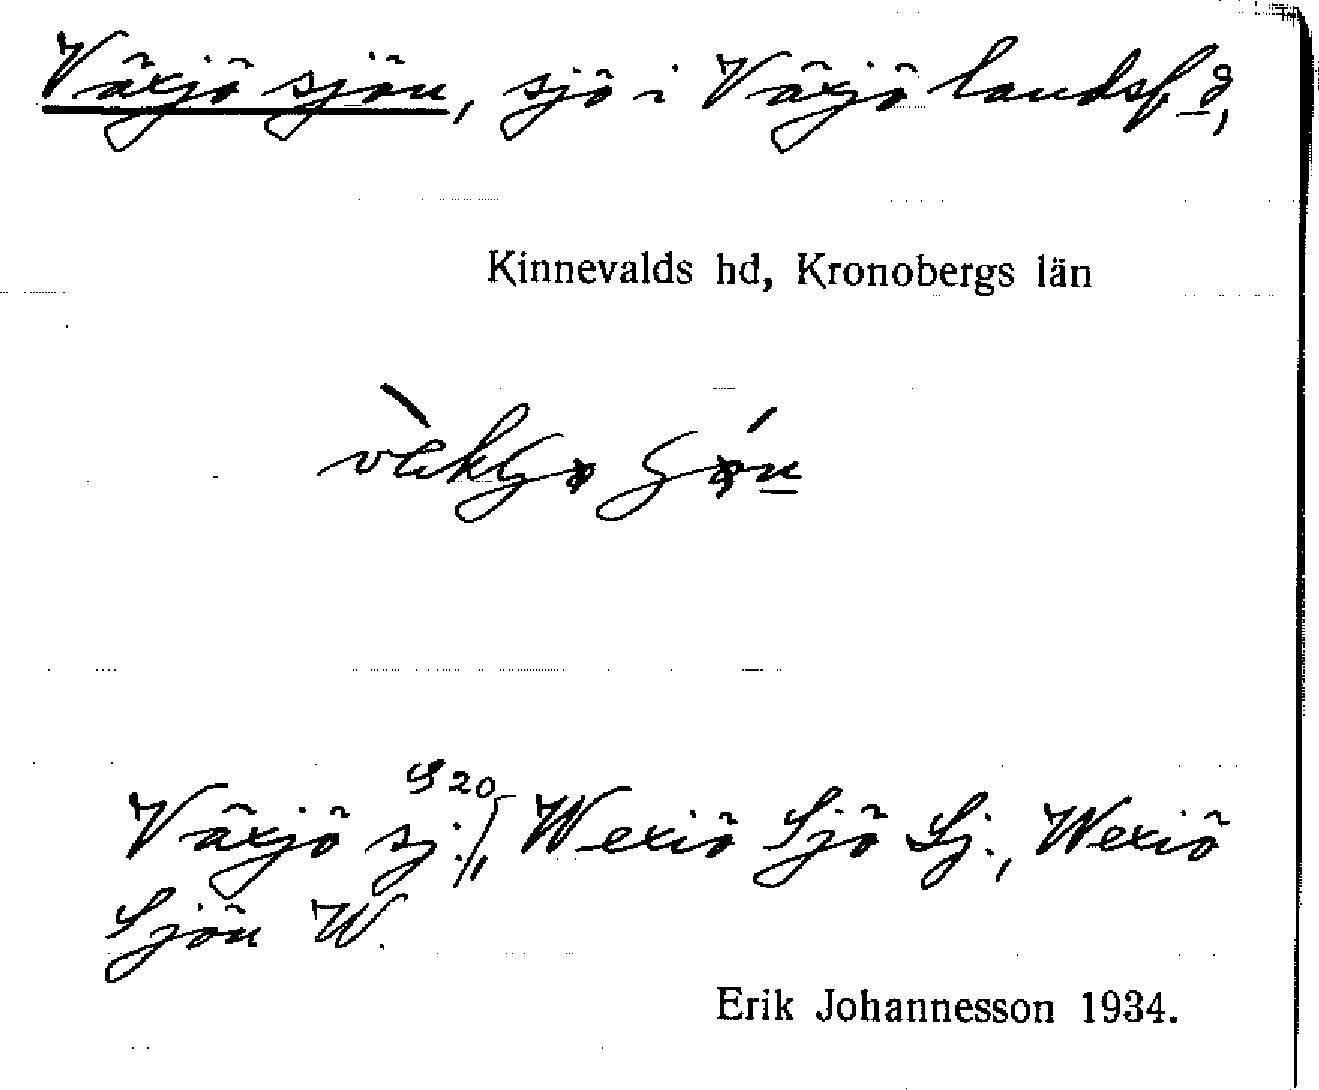 Växjö sjön, sjö i Växjö landsf.d,
Kinnevalds hd, Kronobergs län
Växjö sj. S20, Wexiö Sjö Lj., Wexiö
Sjön W.
Erik Johannesson 1934.